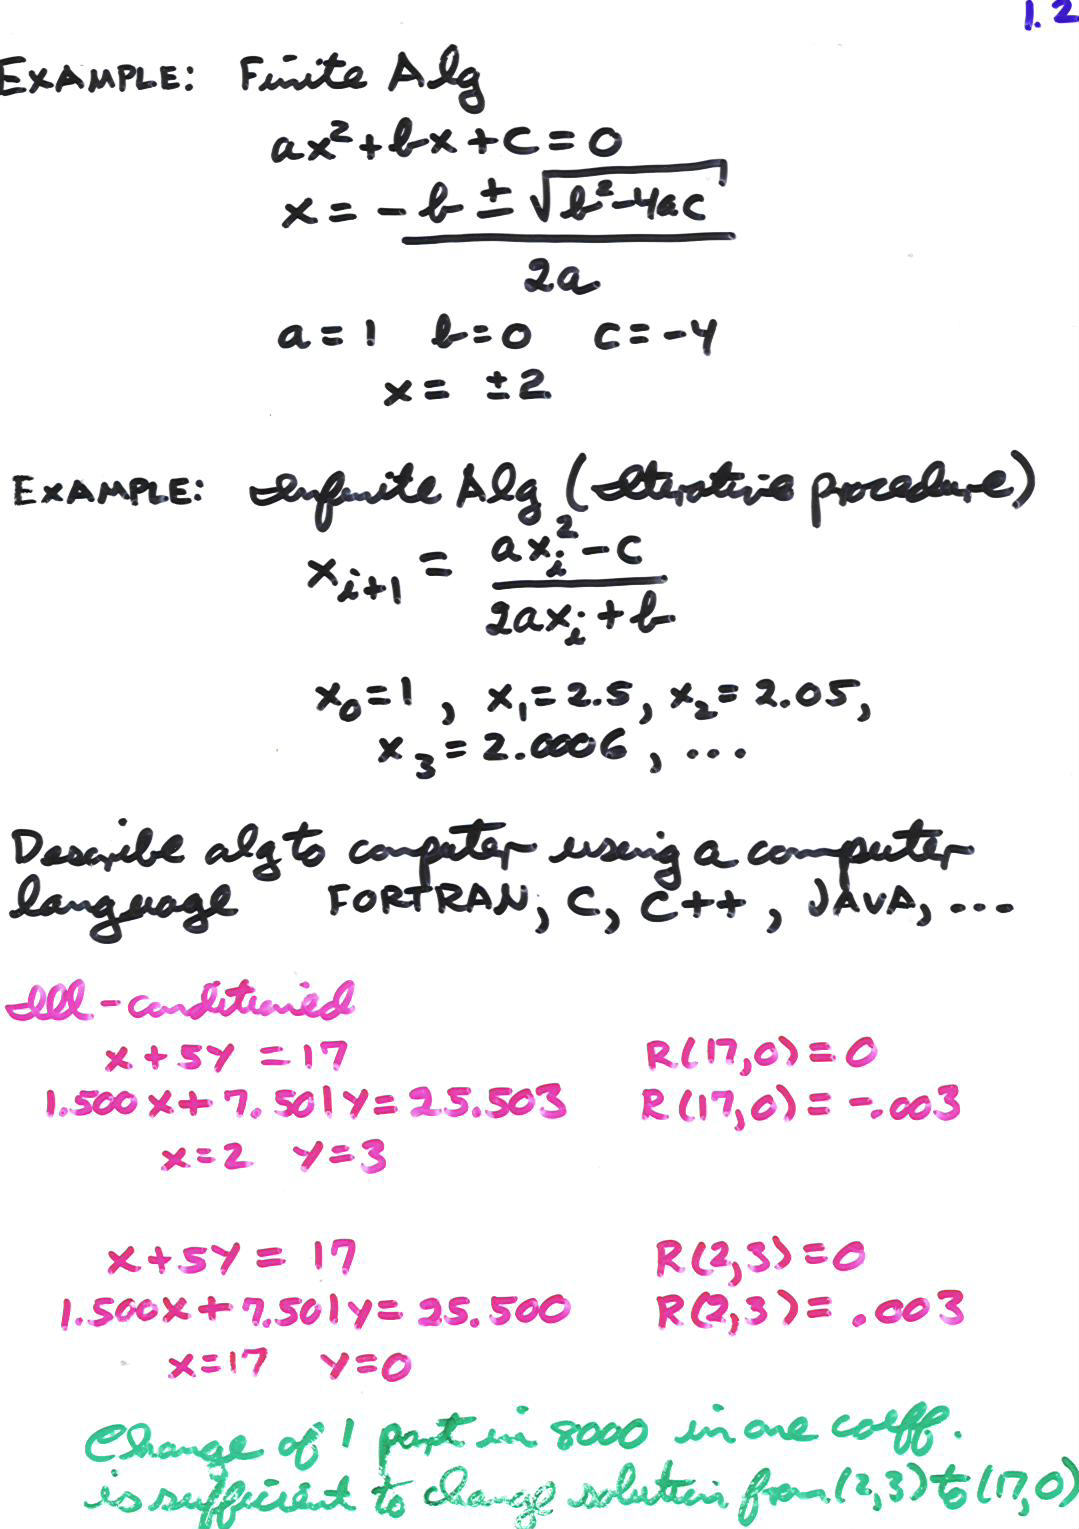 1.2
EXAMPLE: Finite Alg
ax² + bx + c = 0
x = -b ± √(b² - 4ac)
2a
a = 1 b = 0 c = -4
x = ±2
EXAMPLE: Infinite Alg (iterative procedure)
x_{i+1} = ax_i² - c
2ax_i + b
x₀ = 1, x₁ = 2.5, x₂ = 2.05,
x₃ = 2.0006, ...
Describe alg to computer using a computer
language FORTRAN, C, C++, JAVA, ...
Ill-conditioned
x + 5y = 17 R(17,0) = 0
1.500x + 7.501y = 25.503 R(17,0) = -.003
x = 2 y = 3
x + 5y = 17 R(2,3) = 0
1.500x + 7.501y = 25.500 R(2,3) = .003
x = 17 y = 0
Change of 1 part in 8000 in one coeff.
is sufficient to change solution from (2,3) to (17,0)